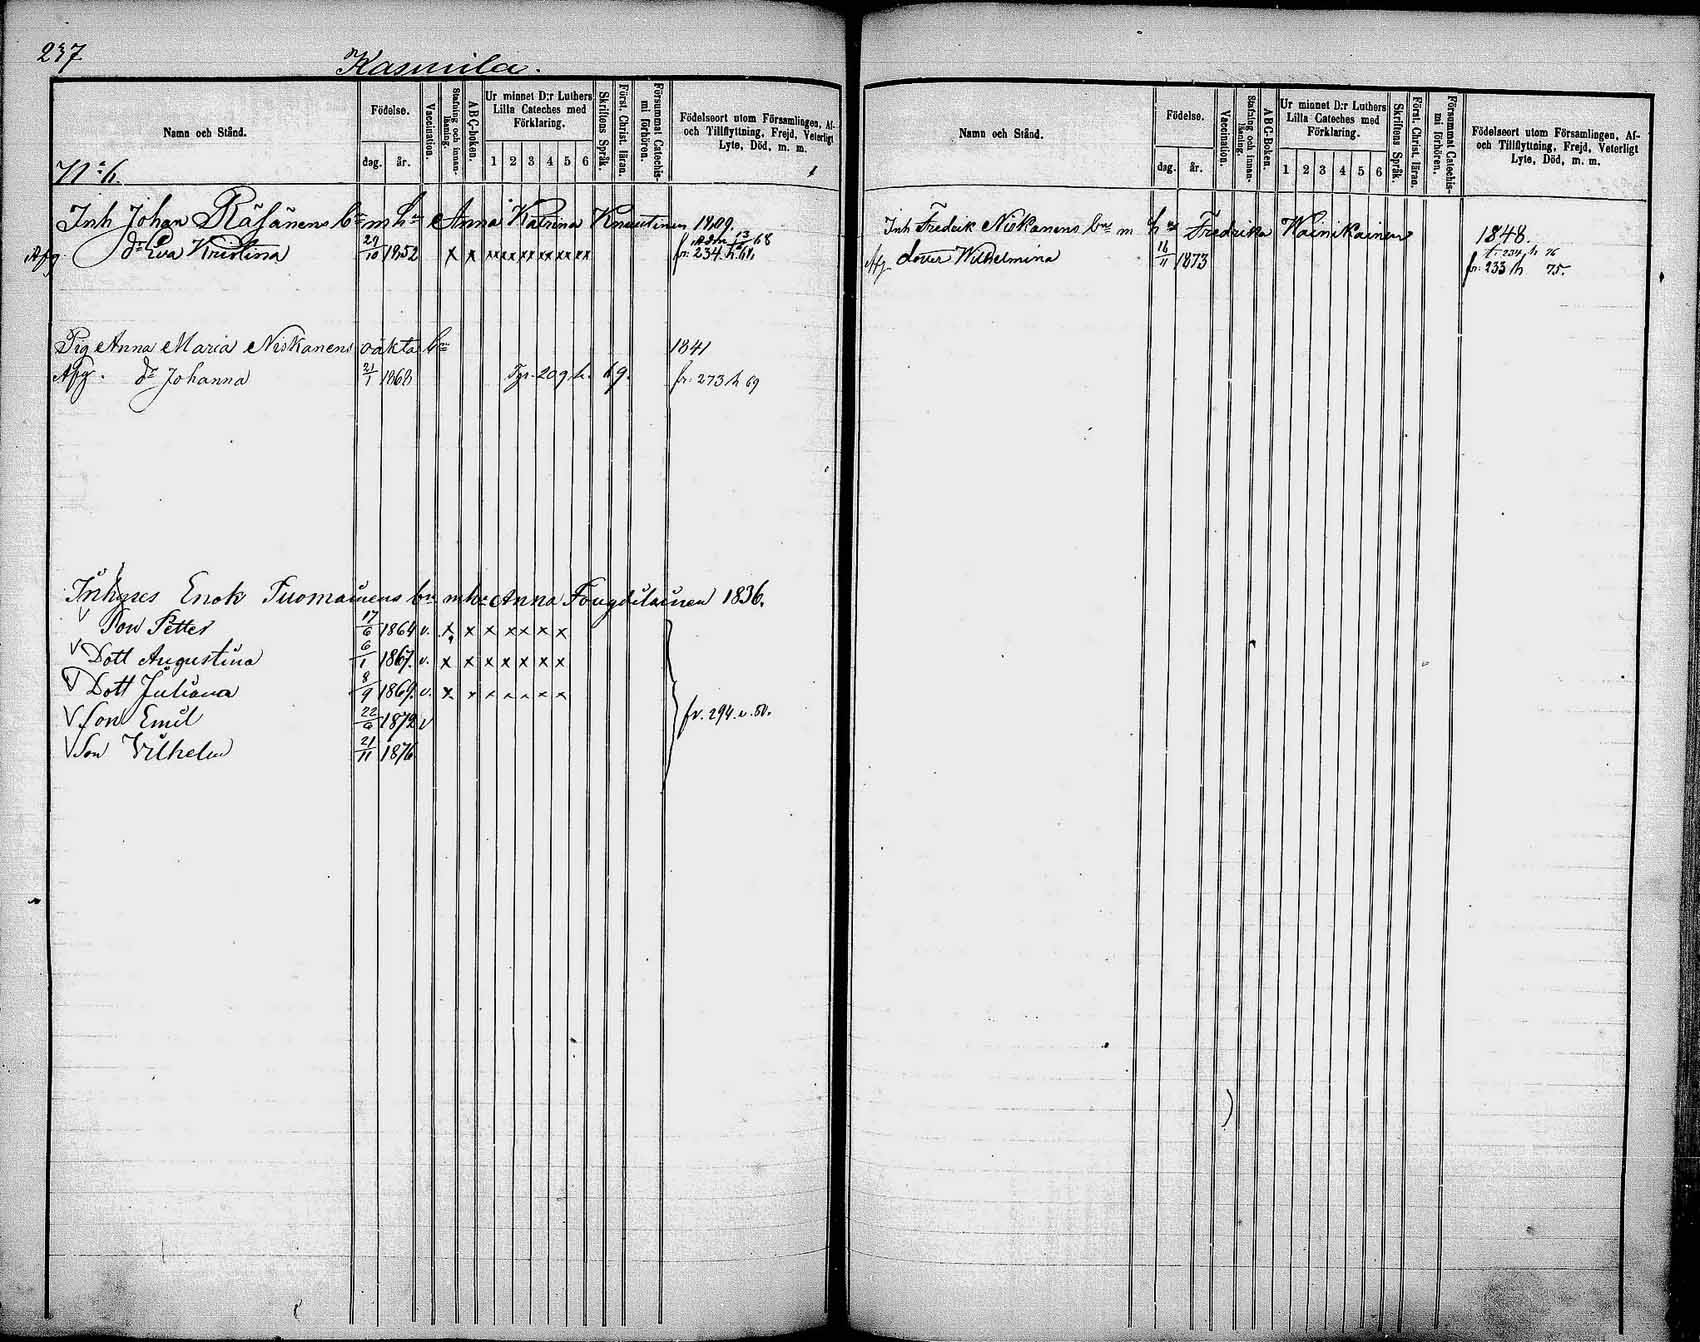 237
Kasurila.
Namn och Stånd.
Födelse.
dag. år.
Vaccination.
Stafning och innan-läsning.
ABC-boken.
Ur minnet D:r Luthers Lilla Cateches med Förklaring.
1 2 3 4 5 6
Skriftens Språk.
Först. Christ. läran.
Försummat Catechis-mi förhören.
Födelseort utom Församlingen, Af-
och Tillflyttning, Frejd, Veterligt
Lyte, Död, m. m.
Inh Johan Räsänens bn m hu Anna Katrina Knuutinen 1809.
Afg dr Eva Kristina 29/10 1852 x x xx xx xx xx xx xx fr. 234. h. 68
Pig Anna Maria Niskanens oäkta bn 1841
Afg. dr Johanna 21/1 1868 Tgr. 209 h. 69. fr. 273 h 69
Inhyses Enok Tuomainens bn m hu Anna 1836.
v Son Petter 17/6 1864 v. x x x x x x x
v Dott Augustina 6/1 1867. v. x x x x x x x
v Dott Juliana 8/9 1869. v. x x x x x x x
v Son Emil 22/6 1872 v fr. 294. v. 80.
v Son Vilhelm 21/11 1876
Namn och Stånd.
Födelse.
dag. år.
Vaccination.
Stafning och innan-läsning.
ABC-Boken.
Ur minnet D:r Luthers Lilla Cateches med Förklaring.
1 2 3 4 5 6
Skriftens Språk.
Först. Christ. läran.
Försummat Catechis-mi förhören.
Födelseort utom Församlingen, Af-
och Tillflyttning, Frejd, Veterligt
Lyte, Död, m. m.
Inh Fredrik Niskanens bn m hu Fredrika Wainikainen 1848.
t. 234 h 76
Afg. dotter Wilhelmina 16/11 1873 fr. 233 h 75.